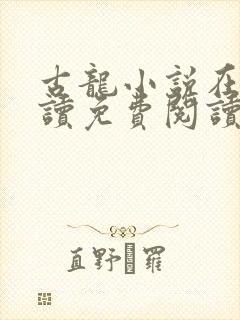 古龍小說在
讀免費閱讀
直野�羅